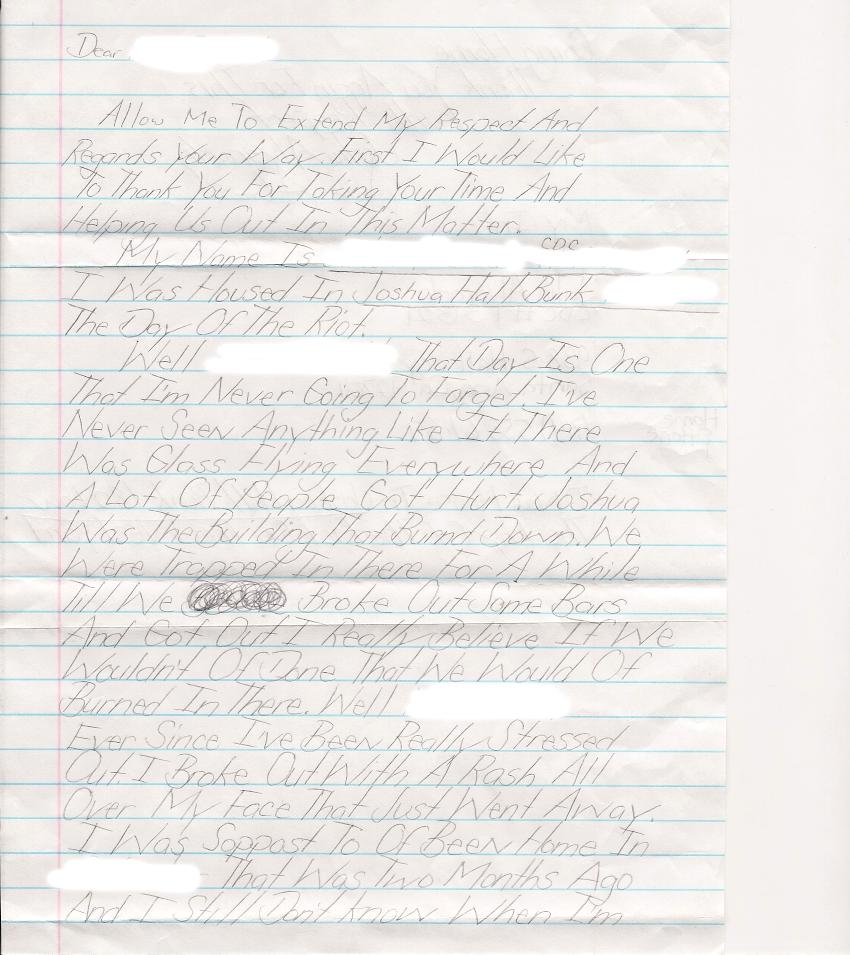 Dear
Allow Me To Extend My Respect And
Regards Your Way. First I Would Like
To Thank You For Taking Your Time And
Helping Us Out In This Matter.
CDC
My Name Is
I Was Housed In Joshua Hall Bunk
The Day Of The Riot.
Well That Day Is One
That I'm Never Going To Forget. I've
Never Seen Anything Like It There
Was Glass Flying Everywhere And
A Lot Of People Got Hurt. Joshua
Was The Building That Burnd Down. We
Were Trapped In There For A While
Till We Broke Out Some Bars
And Got Out I Really Believe If We
Wouldn't Of Done That We Would Of
Burned In There. Well
Ever Since I've Been Really Stressed
Out. I Broke Out With A Rash All
Over My Face That Just Went Away.
I Was Soppast To Of Been Home In
That Was Two Months Ago
And I Still Don't Know When I'm